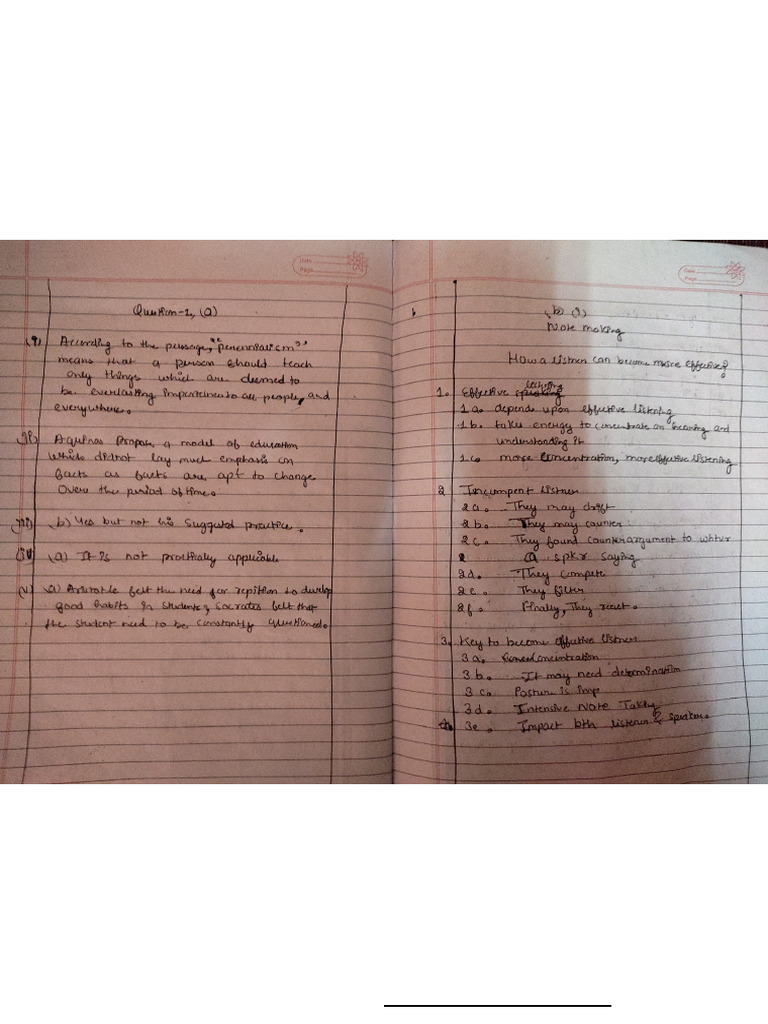 Date
Page
Question-1, (a)
(i) According to the passage, "perennialism"
means that a person should teach
only things which are deemed to
be everlasting importance to all people, and
everywhere.
(ii) Aquinas propose a model of education
which did not lay much emphasis on
facts as facts are apt to change
over the period of time.
(iii) b) Yes but not his suggested practice.
(iv) (a) It is not practically applicable
(v) a) Aristotle felt the need for repition to develop
good habits in students, Socrates felt that
the student need to be constantly questioned.
Date
Page
(b) (1)
Note making
How a listner can become more effective?
1. Effective
1a. depends upon effective listening
1b. takes energy to concentrate on hearing and
understanding it
1c. more concentration, more effective listening
2 Incumpent listner
2a. They may drift
2b. They may counter
2c. They found counterargument to whtvr
a spkr saying
2d. They compete
2e. They filter
2f. Finally, They react.
3. Key to become effective listner
3a. concentration
3b. It may need determination
3c. Posture is imp
3d. Intensive Note Taking
3e. Impact bth listener & speaker.